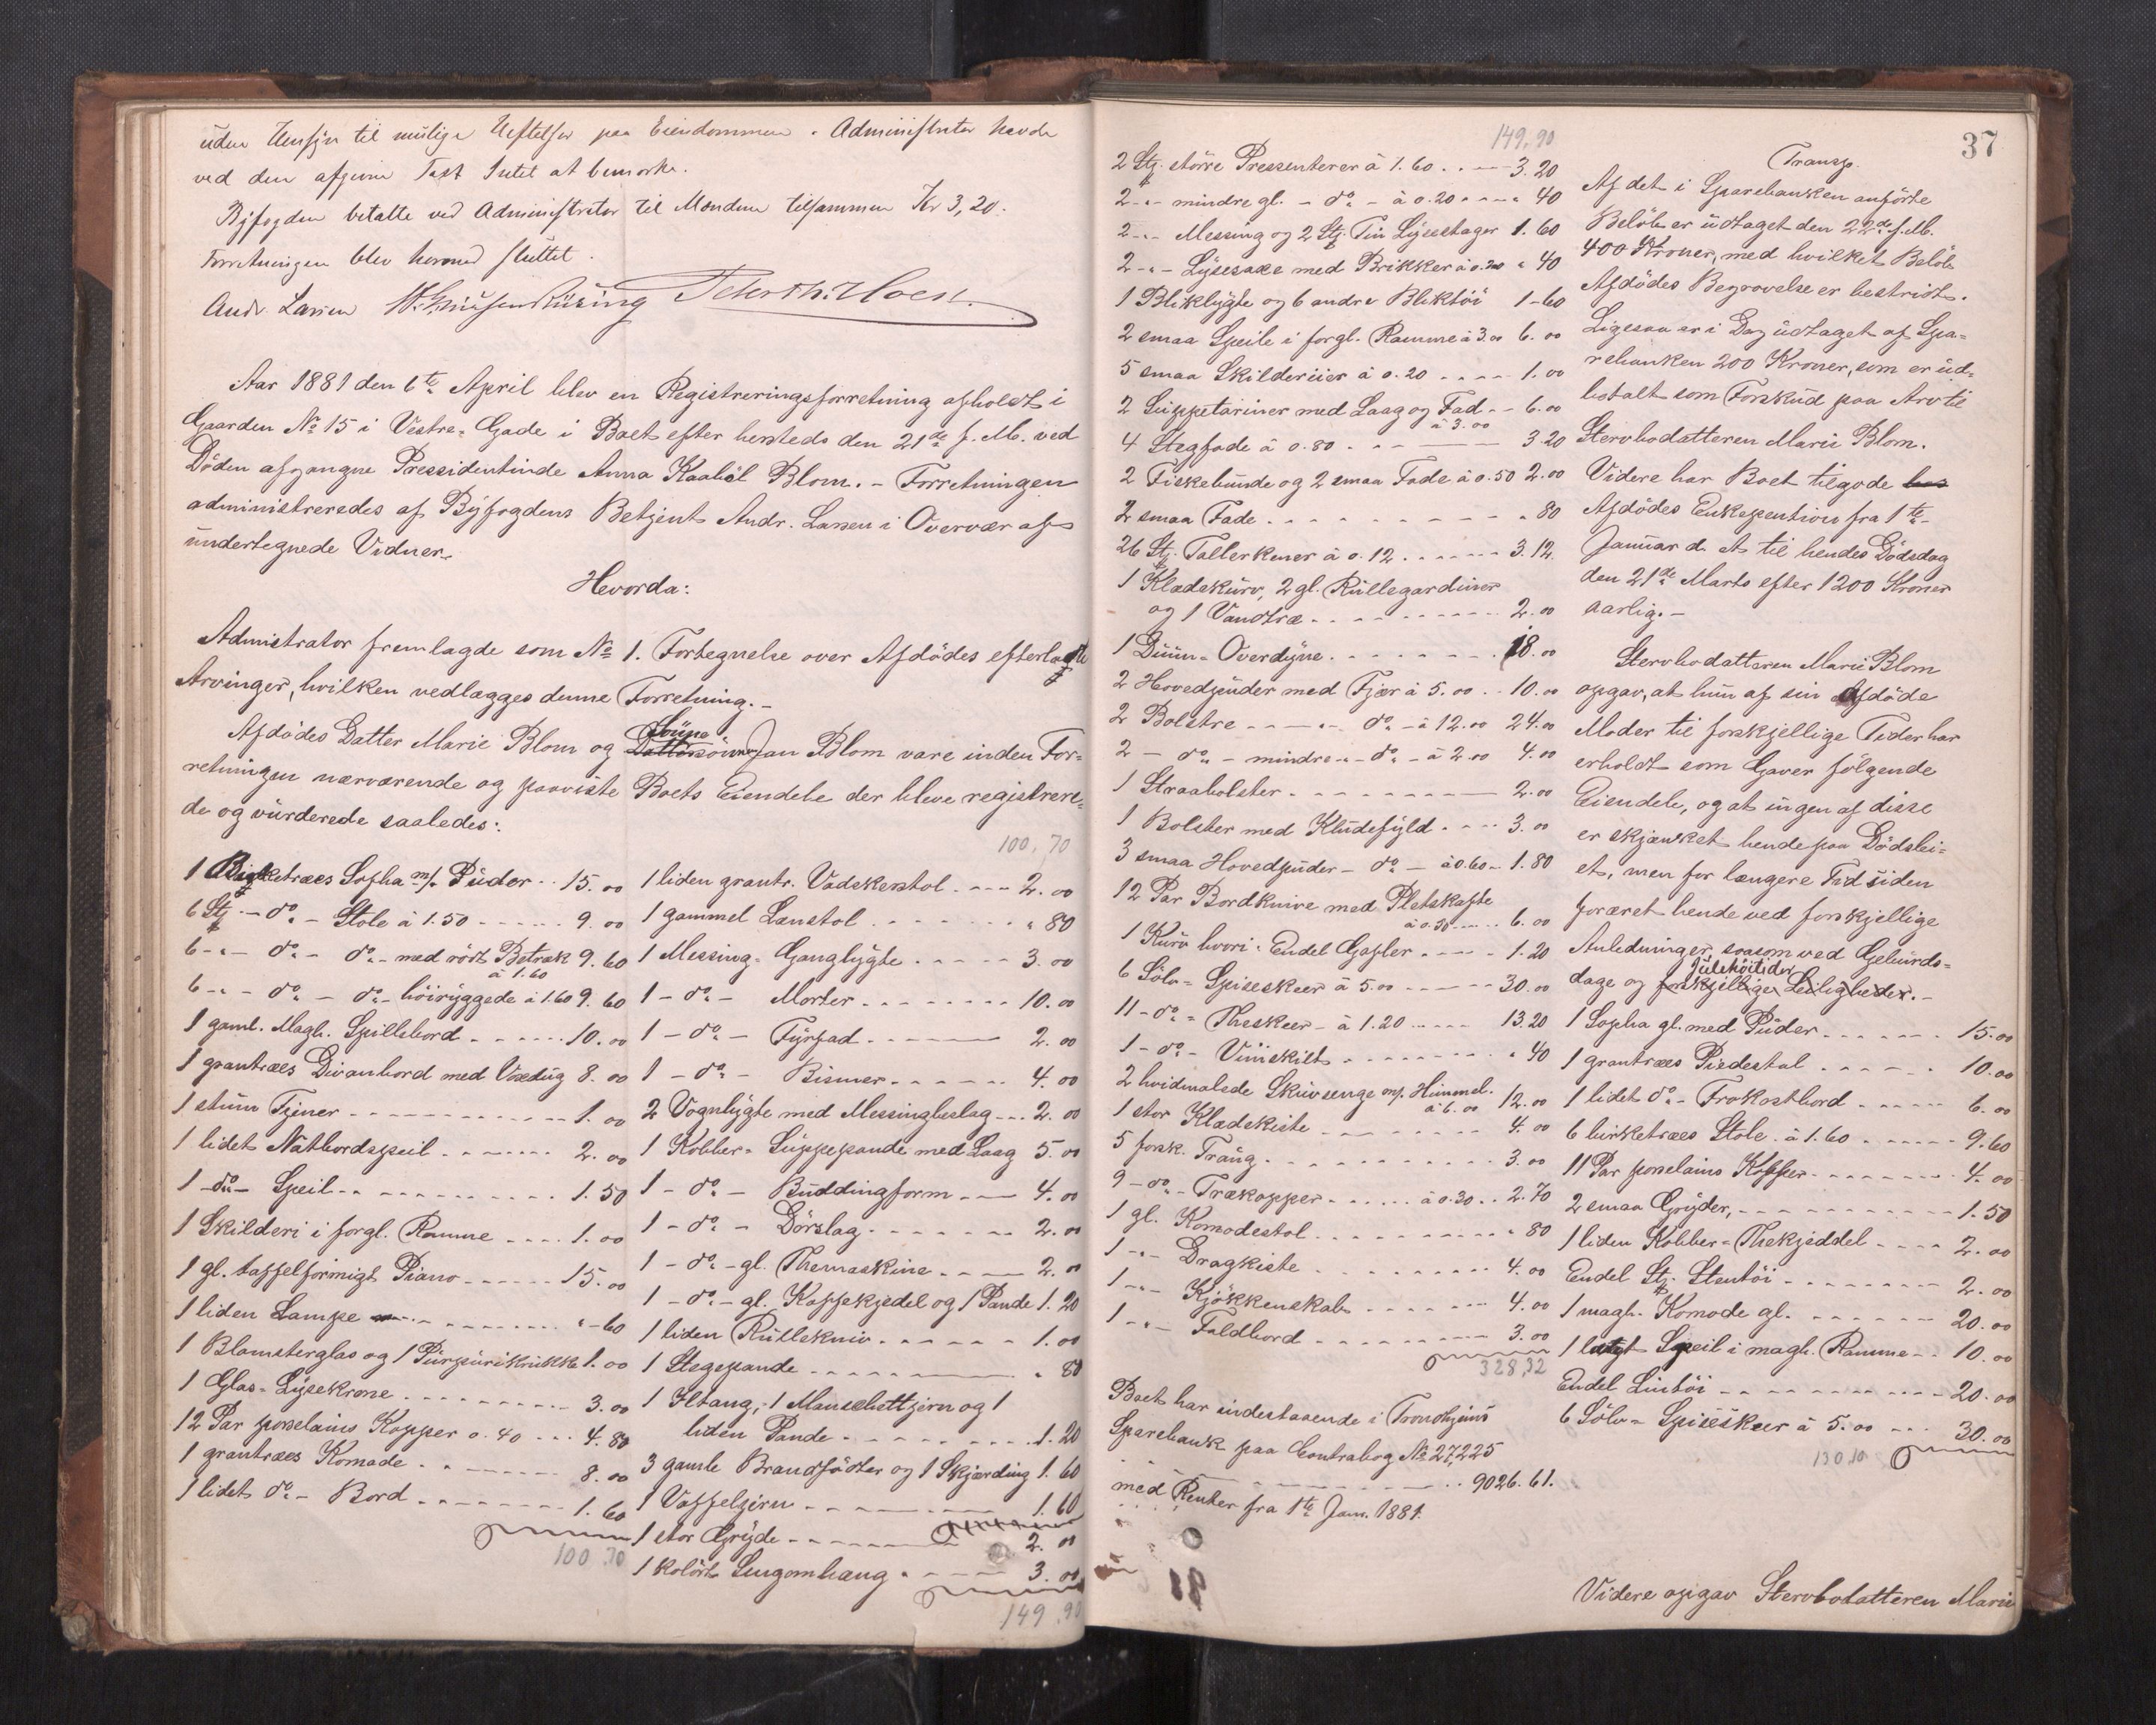 uden Hensyn til mulige Heftelser paa Eiendommen. Administrator havde
ved den afgivne Taxt Intet at bemærke.
Byfogden betalte ved Administrator til Mændene tilsammen Kr 3,20.
Forretningen blev hermed sluttet.
Andr. Larsen
Aar 1881 den 6te April blev en Registreringsforretning afholdt i
Gaarden No 15 i Vestre-Gade i Boet efter hersteds den 21de f. M. ved
Döden afgangne Pressidentinde Anna Kaaböl Blom. - Forretningen
administreredes af Byfogdens Betjent Andr. Larsen i Overvær af
undertegnede Vidner.
Hvorda:
Admistrator fremlagde som No 1. Fortegnelse over Afdödes efterladte
Arvinger, hvilken vedlægges denne Forretning. -
Sönne
Afdödes Datter Marie Blom og Dattersönner Jan Blom vare inden For-
retningen nærværende og paaviste Boets Eiendele der bleve registrere-
de og vurderede saaledes:
1 Birketræes Sopha m/ Puder .. 15.00
6 Stj. - do - Stole à 1.50 9.00
6 - " - do - do - med rödt Betræk 9.60
à 1.60
6 - " - do - do - höiryggede à 1.60 9.60
1 gaml. Magh. Spillebord 10.00
1 grantræes Divanbord med Voxdug 8.00
1 stum Tjener 1.00
1 lidet Natbordspeil 2.00
1 - do - Speil 1.50
1 Skilderi i forgl. Ramme 1.00
1 gl. taffelformigt Piano 15.00
1 liden Lampe " - 60
1 Blomsterglas og 1 Purpurikrukke 1.00
1 Glas-Lysekrone 3.00
12 Par porselains Kopper 0.40 4.80
1 grantræes Komode 8.00
1 lidet do - Bord 1.60
100.70
100,70
1 liden grantr. Vadskerstol 2.00
1 gammel Lænstol " 80
1 Messing-Ganglygte 3.00
1 - do - Morter 10.00
1 - do - Fyrfad 2.00
1 - do - Bismer 4.00
2 Vognlygte med Messingbeslag 2.00
1 Kobber-Suppepande med Laag 5.00
1 - do - Buddingform 4.00
1 - do - Dörslag 2.00
1 - do - gl. Themaskine 2.00
1 - do - gl. Kaffekjedel og 1 Pande 1.20
1 liden Rullekniv 1.00
1 Stegepande " 80
1 Ildtang, 1 Manschettjern og 1
liden Pande 1.20
3 gamle Brandfödter og 1 Skjærding 1.60
1 Vaffeljern 1.60
1 stor Gryde 2.00
1 kolört Sengomhæng 3.00
149.90
37
149,90
2 Stj. större Pressenterer à 1.60 3.20
2 - " - mindre gl. - do - à 0.20 " 40
2 - " - Messing og 2 Stj. Tin Lysestager 1.60
2 - " - Lysesaxe med Brikker à 0.20 " 40
1 Bliklygte og 6 andre Bliktöi 1-60
2 smaa Speile i forgl. Ramme à 3.00 6.00
5 smaa Skilderiier à 0.20 1.00
2 Suppetariner med Laag og Fad 6.00
à 3.00
4 Stegfade à 0.80 3.20
2 Fiskebunde og 2 smaa Fade à 0.50 2.00
2 smaa Fade " 80
26 Stj. Tallerkener à 0.12 3.12
1 Klædekurv, 2 gl. Rullegardiner
og 1 Vandtræ 2.00
1 Duun-Overdyne 18.00
2 Hovedpuder med Fjær à 5.00 10.00
2 Bolstre - " - do - à 12.00 24.00
2 - do - mindre - " - do - à 2.00 4.00
1 Straabolster 2.00
1 Bolster med Kludefyld 3.00
3 smaa Hovedpuder - do - à 0.60 - 1.80
12 Par Bordknive med Pletskafte
à 0.50 6.00
1 Kurv hvori Endel Gafler 1.20
6 Sölv-Spiseskeer à 5.00 30.00
11 - do - Theskeer - à 1.20 13.20
1 - do - Viinskilt " 40
2 hvidmalede Skuvsenge m/ Himmel.
à 6.00 12.00
1 stor Klædekiste 4.00
5 forsk. Traug 3.00
9 - do - Trækopper à 0.30 2.70
1 gl. Komodestol " 80
1 - " - Dragkiste 4.00
1 - " - Kjökkenskab 4.00
1 - " - Foldbord 3.00
328,32
Boet har indestaaende i Trondhjems
Sparebank paa Contrabog No 27,225
9026.61.
med Renter fra 1te Jan. 1881.
18
Transp.
Af det i Sparebanken anförte
Belöb er udtaget den 22de f. M.
400 Kroner, med hvilket Belöb
Afdödes Begravelse er bestridt.
Ligesaa er i Dag udtaget af Spa-
rebanken 200 Kroner, som er ud-
betalt som Forskud paa Arv til
Stervbodatteren Marie Blom.
Videre har Boet tilgode
Afdödes Enkepention fra 1te
Januar d. A. til hendes Dödsdag
den 21de Marts efter 1200 Kroner
aarlig. -
Stervbodatteren Marie Blom
opgav, at hun af sin Afdöde
Moder til forskjellige Tider har
erholdt som Gaver fölgende
Eiendele, og at ingen af disse
er skjænket hende paa Dödslei-
et, men for længere Tid siden
foræret hende ved forskjellige
Anledninger, saasom ved Geburds-
Julehöitider
dage og forskjellige Leiligheder. -
1 Sopha gl. med Puder 15.00
1 grantræes Piedestal 10.00
1 lidet do - Frokostbord 6.00
6 birketræes Stole à 1.60 9.60
11 Par porselains Kopper 4.00
2 smaa Gryder, 1.50
1 liden Kobber-Thekjeddel 2.00
Endel Stj. Stentöi 2.00
1 magh. Komode gl. 20.00
1 Speil i magh. Ramme 10.00
Endel Lintöi 20.00
6 Sölv-Spiseskeer à 5.00 30.00
130 10
Videre opgav Stervbodatteren Marie